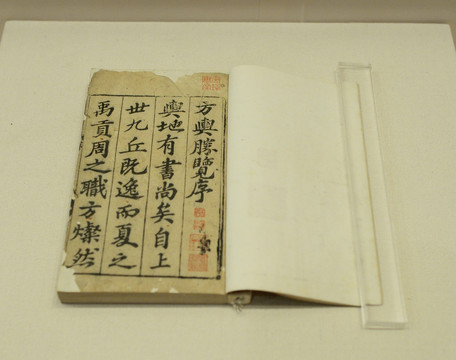 方輿勝覽序
輿地有書尚矣自上
世九丘既逸而夏之
禹貢周之職方燦然